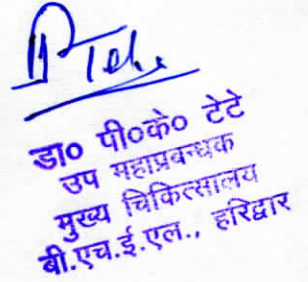 डा० पी०के० टेटे
उप महाप्रबन्धक
मुख्य चिकित्सालय
बी.एच.ई.एल., हरिद्वार